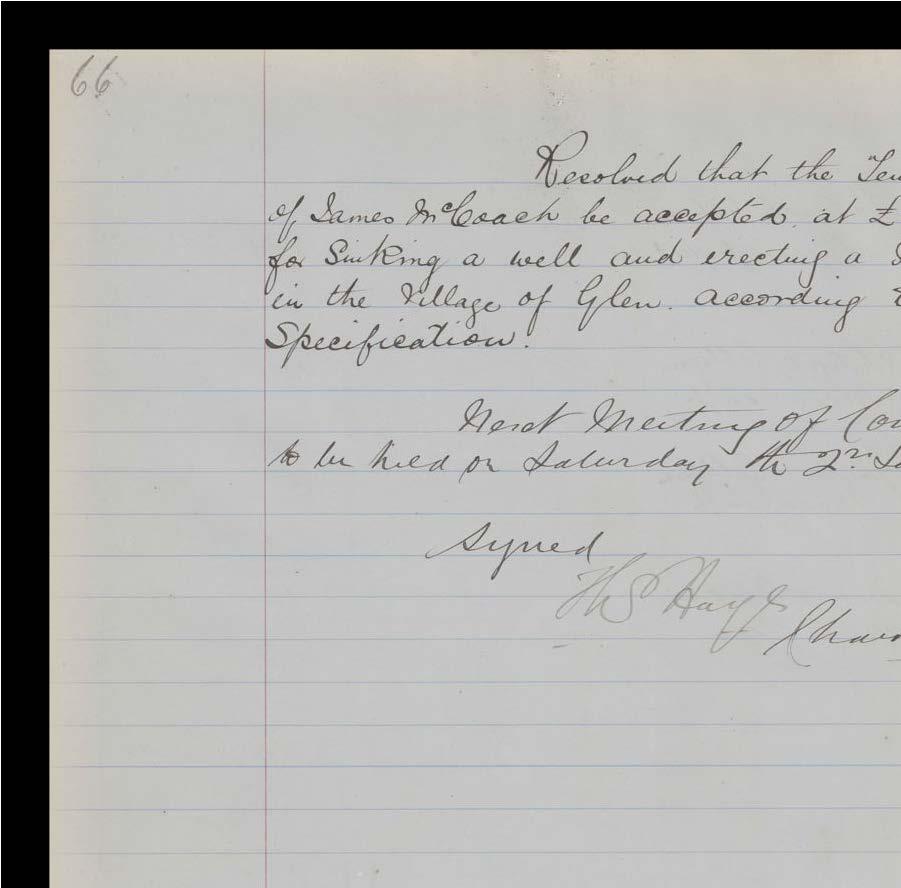 66
Resolved that the Ten
of James McCoach be accepted. at £
for Sinking a well and erecting a
in the Village of Glen. according
Specification.
Next Meeting of Com
to be held on Saturday the 2nd
Signed
Hayes
Chair